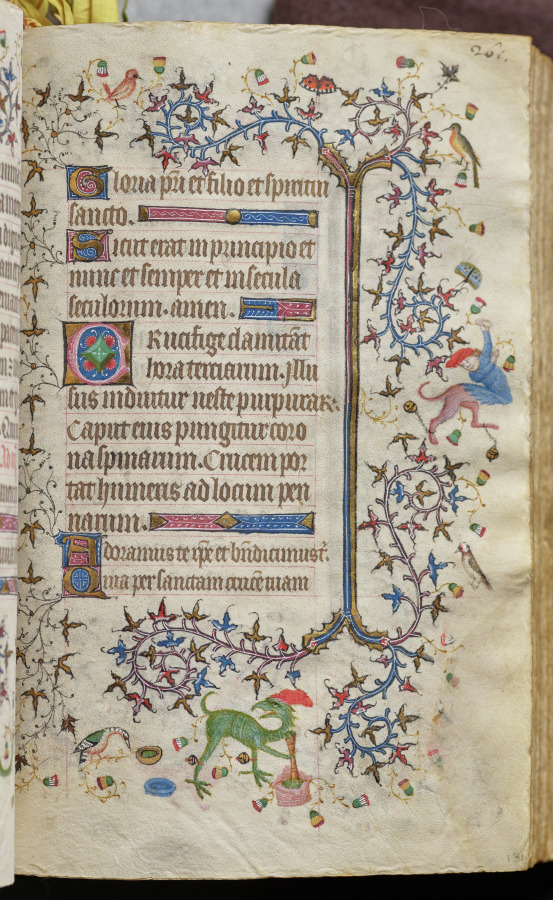 261.
Gloria pr̃i et filio et spiritui
sancto.
Sicut erat in principio et
nunc et semper et in secula
seculorum. amen.
Crucifige clamitãt
hora terciarum. Illu
sus induitur ueste purpurar:
Caput eius pungitur coro
na spinarum. Crucem por
tat humeris ad locum pen
narum.
Adoramus te xp̃e et bñdicimus t̃.
Quia per sanctam crucẽ tuam